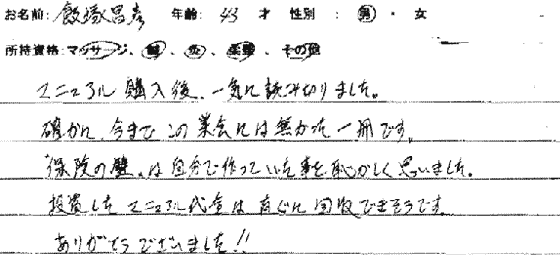 お名前: 飯塚昌彦 年齢: 43 才 性別 : 男 ・ 女
所持資格: マッサージ、鍼、灸、柔整、その他
マニュアル購入後、一気に読み切りました。
確かに、今までこの業会には無かった一冊です。
"保険の壁"は自分で作っていた事を恥かしく思いました。
投資したマニュアル代金は直ぐに回収できそうです。
ありがとうございました!!